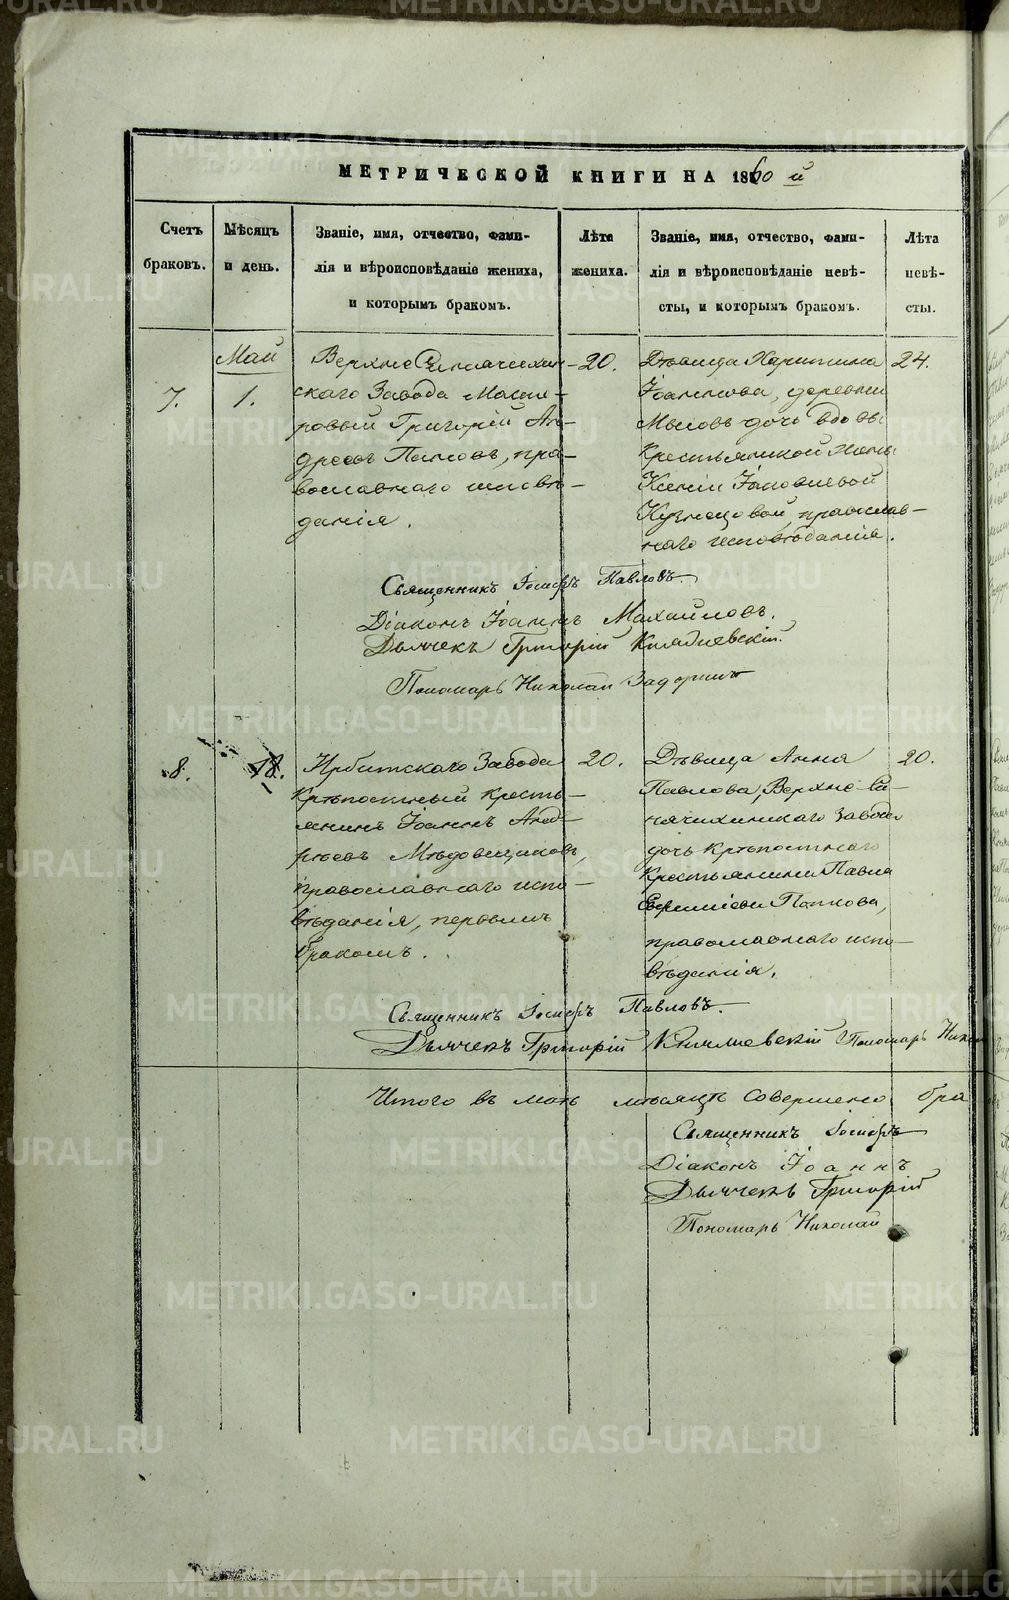 МЕТРИЧЕСКОЙ КНИГИ НА 1860 й
Счетъ браковъ.
Мѣсяцъ и день.
Званіе, имя, отчество, фами-
лія и вѣроисповѣданіе жениха,
и которымъ бракомъ.
Лѣта жениха.
Званіе, имя, отчество, фами-
лія и вѣроисповѣданіе невѣ-
сты, и которымъ бракомъ.
Лѣта невѣ-
сты.
Май
7.
1.
Верхне Синячихин-
скаго Завода Масте-
ровый Григорій Ан-
дреевъ Пановъ, пра-
вославнаго исповѣ-
данія.
20.
Дѣвица Харитина
Іоаннова, деревни
Мысовъ дочь вдовы
Крестьянской Жены
Ксеніи
Кузнецовой, православ-
наго исповѣданія.
24.
Священникъ Іосифъ Павловъ.
Діаконъ Іоаннъ Михайловъ.
Дьячекъ Григорій
Пономарь Николай Задоринъ
8.
18.
Ирбитскаго Завода
Крѣпостный кресть-
янинъ Іоаннъ Анд-
реевъ Мѣдовщиковъ,
православнаго испо-
вѣданія, первымъ
бракомъ.
20.
Дѣвица Анна
Павлова, Верхне-Си-
нячихинскаго Завода
дочь Крѣпостнаго
Крестьянина Павла
Попкова,
православнаго испо-
вѣданія.
20.
Священникъ Іосифъ Павловъ.
Дьячекъ Григорій Пономарь Никол
Итого въ маѣ мѣсяцѣ совершено бра
Священникъ Іосифъ
Діаконъ Іоаннъ
Дьячекъ Григорій
Пономарь Николай
METRIKI.GASO-URAL.RU